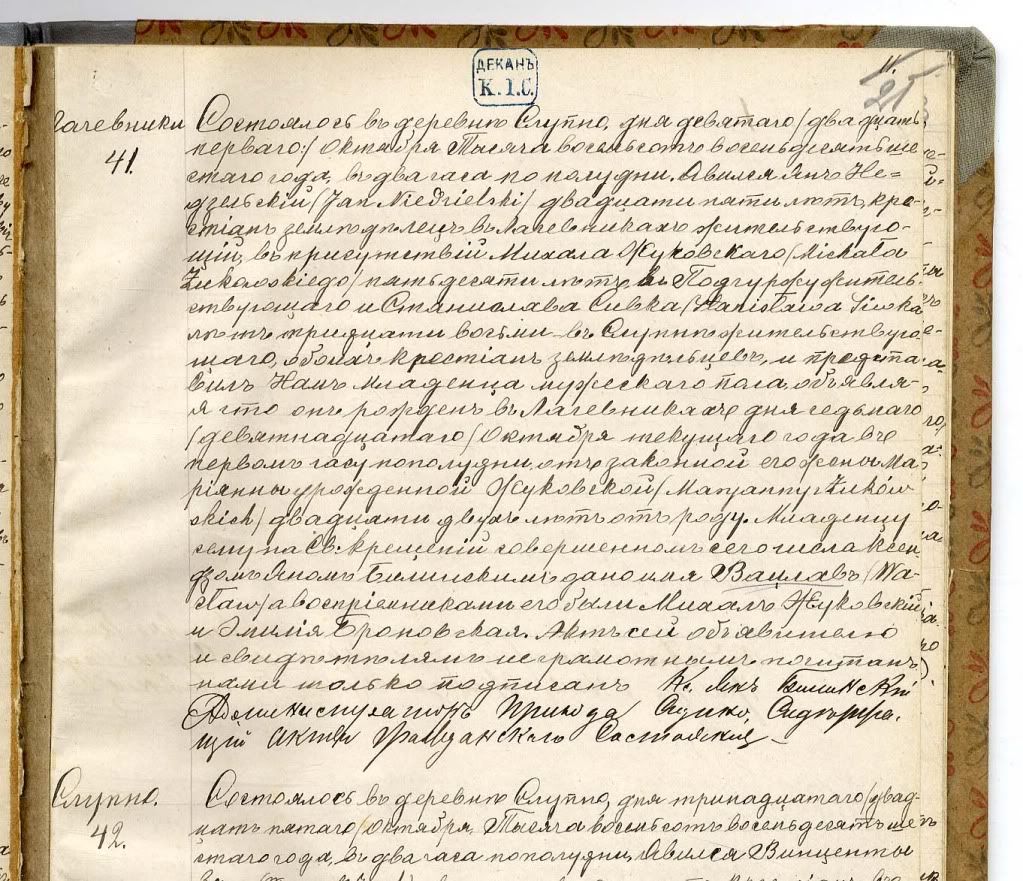 ДЕКАНЪ
К. I. С.
11.
21
Лагевники
41.
Состоялось въ деревнѣ Слупно, дня девятаго / двадцать
перваго / Октября Тысяча восемьсотъ восемьдесятъ ше
стаго года, въ два часа по полудни. Явился Янъ Не=
дзельскій / Jan Niedzielski / двадцати пяти лѣтъ, кре-
стіанъ земледѣлецъ въ Лагевникахъ жительствую-
щій, въ присутствіи Михала Жуковскаго / Michała
Żukowskiego / пятьдесяти лѣтъ въ Подгурже житель
ствующаго и Станислава Сивка / Stanisława Siwka
лѣтъ тридцати восьми въ Слупнѣ жительствую
щаго, обоихъ крестіанъ земледѣльцевъ, и предста
вилъ Намъ младенца мужескаго пола, объявля-
я что онъ рожденъ въ Лагевникахъ дня седьмаго
/ девятнадцатаго / Октября текущаго года въ
первомъ часу пополудни, отъ законной его жены Ма
ріянны урожденной Жуковской / Maryanny Żuków
skich / двадцати двухъ лѣтъ отъ роду. Младенцу
сему на Св: крещеніи совершенномъ сего числа Ксен
дзомъ Яномъ Билинскимъ дано имя Вацлавъ / Wa-
cław / а воспріемниками его были Михалъ Жуковскій
и Эмилія Броновская. Актъ сей объявителю
и свидѣтелямъ неграмотнымъ почитанъ
нами только подписанъ Кс. Янъ Билинскій
Администраторъ Прихода Содержа.
щій актъ Гражданскаго Состоянія
Слупно.
42.
Состоялось въ деревнѣ Слупно, дня тринадцатаго / двад-
цать пятаго / Октября, Тысяча восемьсотъ восемьдесятъ ше
стаго года, въ два часа пополудни, Явился Винценты